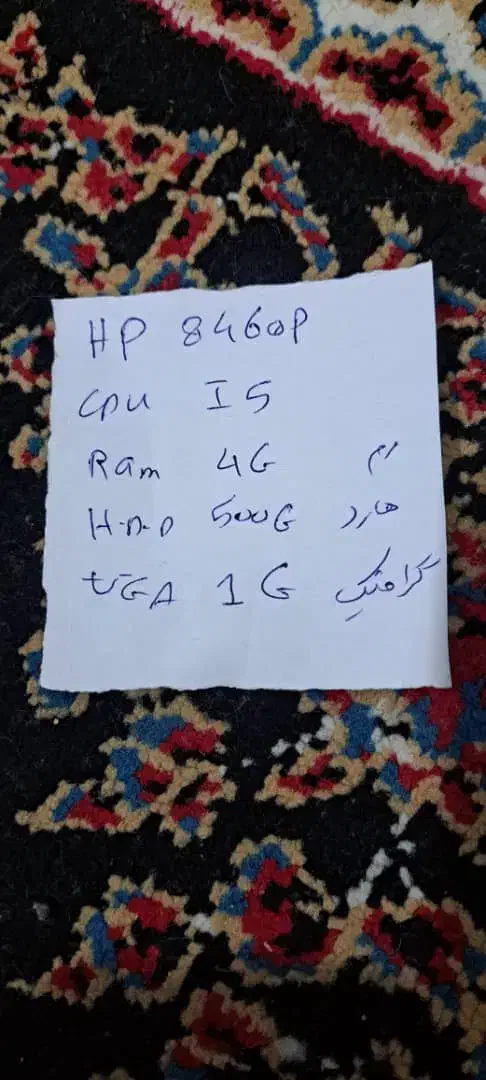 HP 8460P
CPU I5
Ram 4G رم
H.D.D 500G هارد
VGA 1G گرافیک